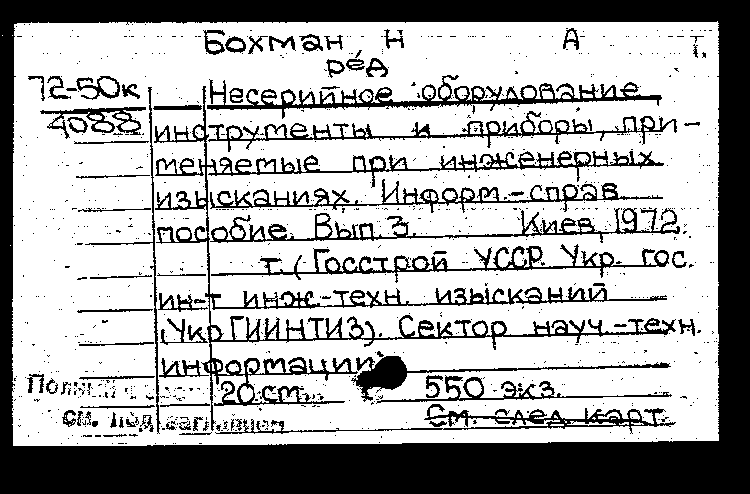 Бохман Н А Т.
ред
72-50к Несерийное оборудование
4088 инструменты и приборы, при-
меняемые при инженерных
изысканиях. Информ.-справ
пособие. Вып. 3. Киев, 1972.
т. (Госстрой УССР. Укр. гос.
ин-т инж.-техн. изысканий
(УкрГИИНТИЗ). Сектор науч.-техн.
информации
Полный 20 см. с. 550 экз.
см. под заглавием См. след. карт.